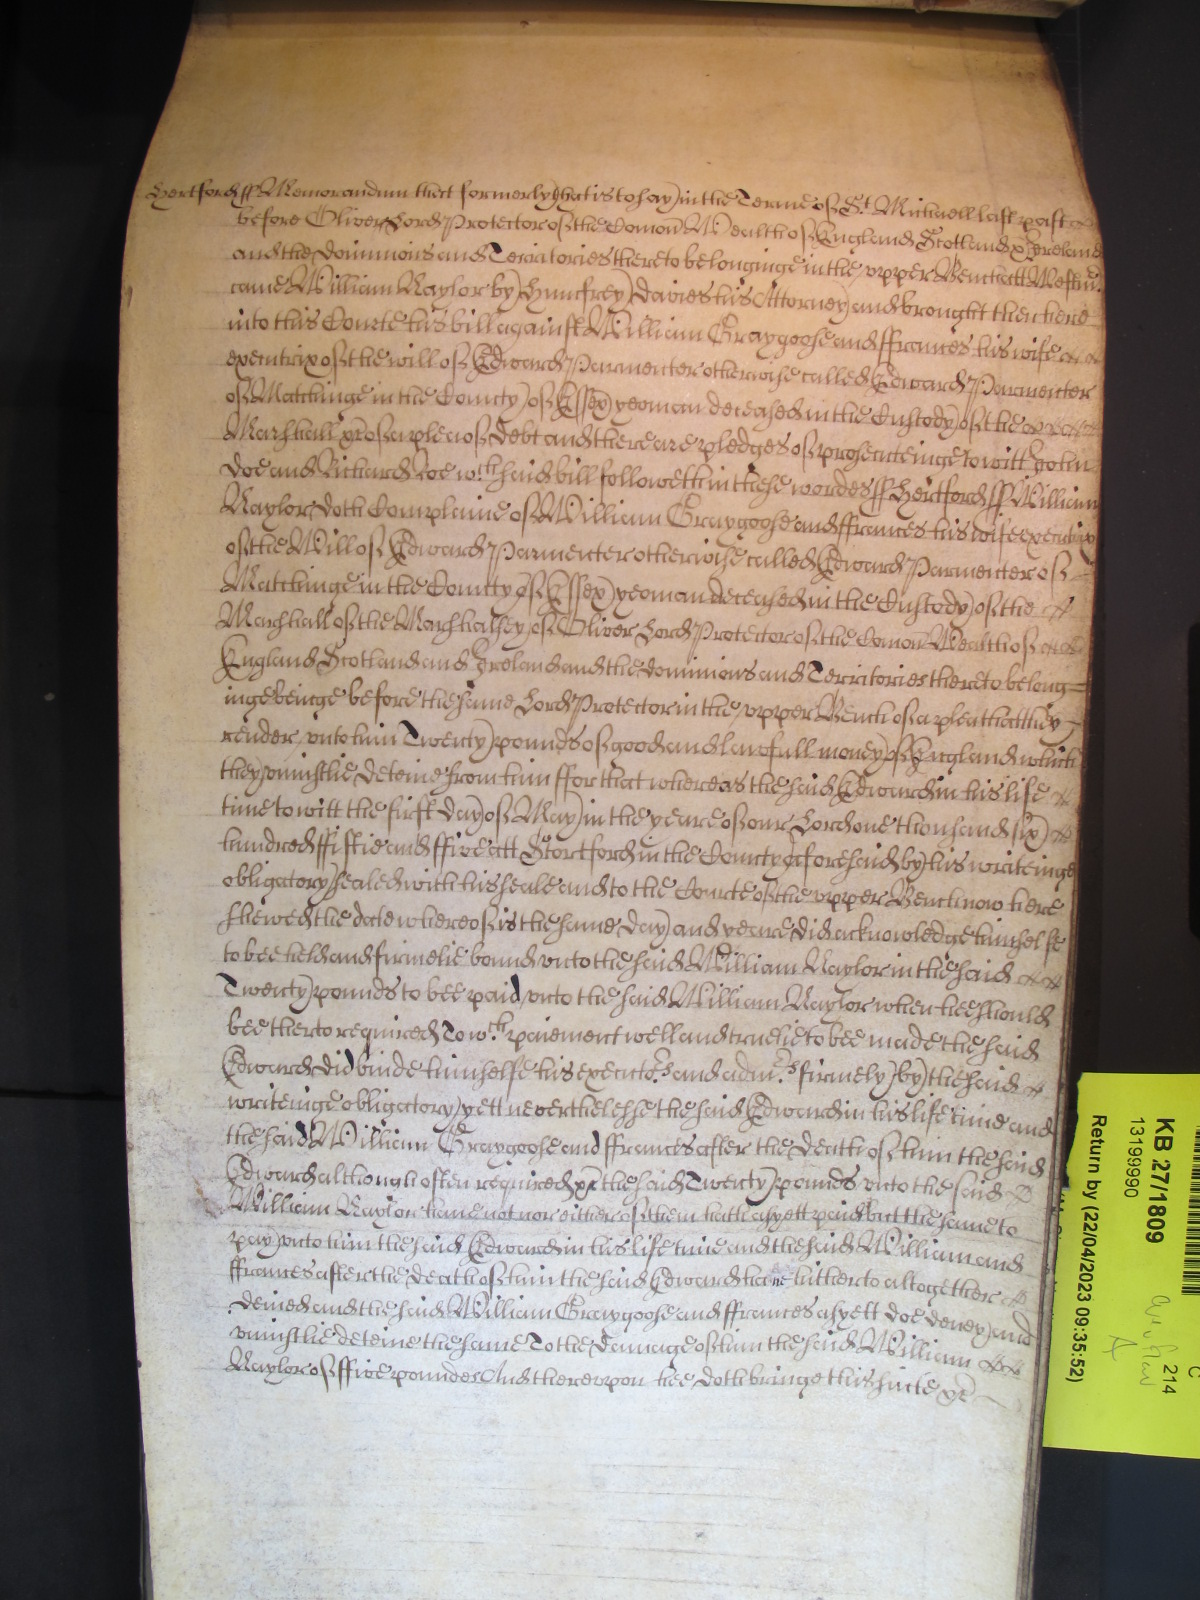 Hertford ss Memorandum that formerly (that is to say) in the Terme of St. Michaell last past
before Oliver Lord Protector of the Comon Wealth of England Scotland & Ireland
and the Dominions and Territories thereto belonginge in the upper Bench att Westmr.
came William Naylor by Humfrey Davies his Attorney and brought then here
into this Courte his bill against William Graygoose and ffrances his wife
executrix of the will of Edward Parmenter otherwise called Edward Parmenter
of Matchinge in the County of Essex yeoman deceased in the Custody of the
Marshall &c of a plea of debt and there are pledges of prosecuteinge to witt John
Doe and Richard Roe wch. said bill followeth in these wordes ss Hertford ss William
Naylor doth Complaine of William Graygoose and ffrances his wife executrix
of the Will of Edward Parmenter otherwise called Edward Parmenter of
Matchinge in the County of Essex yeoman deceased in the Custody of the
Marshall of the Marshalsey of Oliver Lord Protector of the Comon Wealth of
England Scotland and Ireland and the dominions and Territories thereto belong=
inge beinge before the same Lord Protector in the upper Bench of a plea that they
render unto him Twenty pounds of good and lawfull money of England which
they uniustlie deteine from him ffor that whereas the said Edward in his life
time to witt the first day of May in the yeare of our Lord one thousand six
hundred ffiftie and ffive att Stortford in the County aforesaid by his writeinge
obligatory sealed with his seale and to the Courte of the upper Bench now here
shewed the date whereof is the same day and yeare did acknowledge himselfe
to bee held and firmelie bound unto the said William Naylor in the said
Twenty pounds to bee paid unto the said William Naylor when hee should
bee therto required To wch. paiement well and truelie to bee made the said
Edward did binde himselfe his execut.rs and adm.rs firmely by the said
writeinge obligatory yett neverthelesse the said Edward in his life time and
the said William Graygoose and ffrances after the death of him the said
Edward although often required &c the said Twenty pounds unto the said
William Naylor have not nor either of them hath as yett paid but the same to
pay unto him the said Edward in his life time and the said William and
ffrances after the death of him the said Edward have hitherto altogether
denied and the said William Graygoose and ffrances as yett doe deney and
uniustlie deteine the same To the damage of him the said William
Naylor of ffive poundes And thereupon hee doth bringe this suite &c
KB 27/1809
13199990
Return by (22/04/2023 09:35:52)
214